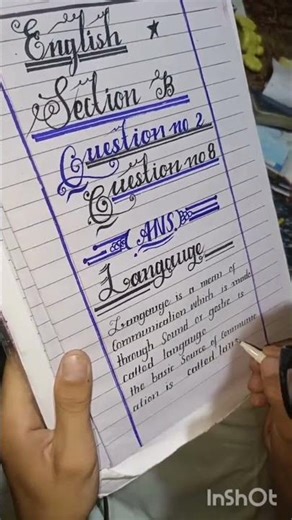 English
Section B
Question no 2
Question no 8
ANS.
Langauge
Langauge is a mean of
Communication which is made
through Sound or gestre is
called language
the basic Source of Commune
ation is called lan
InShOt